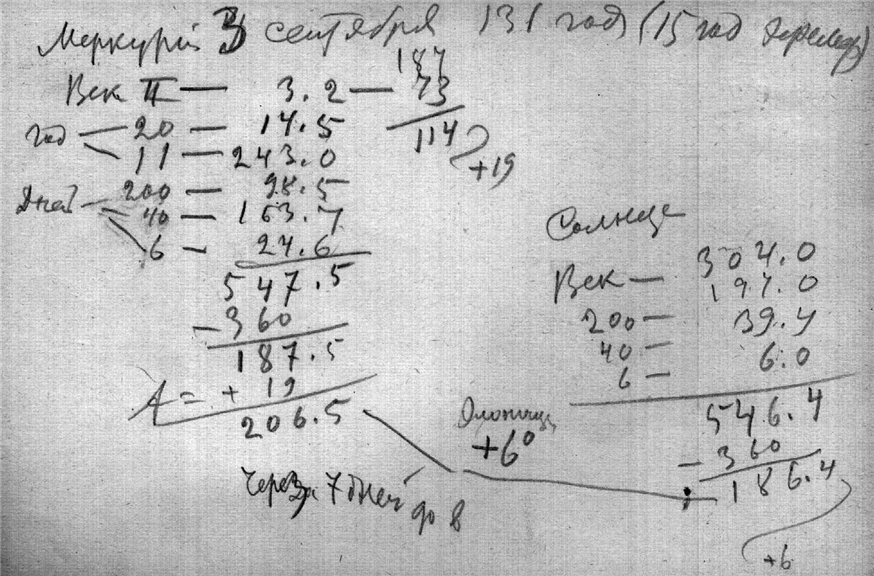 Меркурий 3 сентября 131 год (15 год
187
Век II — 3.2 — 73
114
+19
год 20 — 14.5
11 — 243.0
дней 200 — 98.5
40 — 163.7
6 — 24.6
547.5
— 360
187.5
A = + 19
206.5
Через 7 дней до 8
+6°
Солнце
304.0
Век — 197.0
200 — 39.4
40 — 6.0
6 —
546.4
— 360
186.4
+6